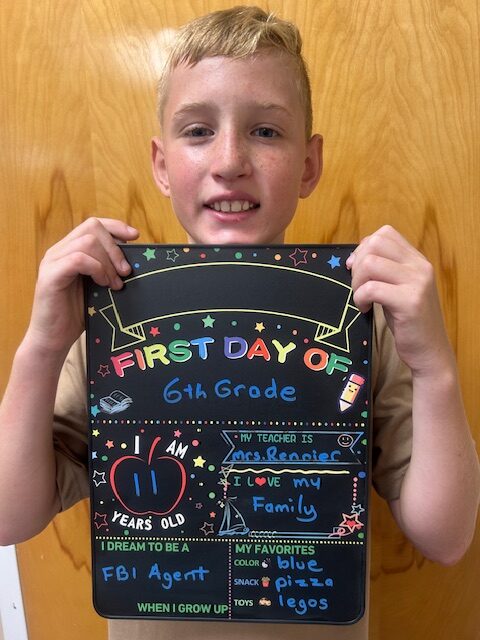 FIRST DAY OF
6th Grade
I AM
11
YEARS OLD
MY TEACHER IS
mrs.Rennier
I L♥VE my
Family
I DREAM TO BE A
FBI Agent
WHEN I GROW UP
MY FAVORITES
COLOR blue
SNACK pizza
TOYS legos